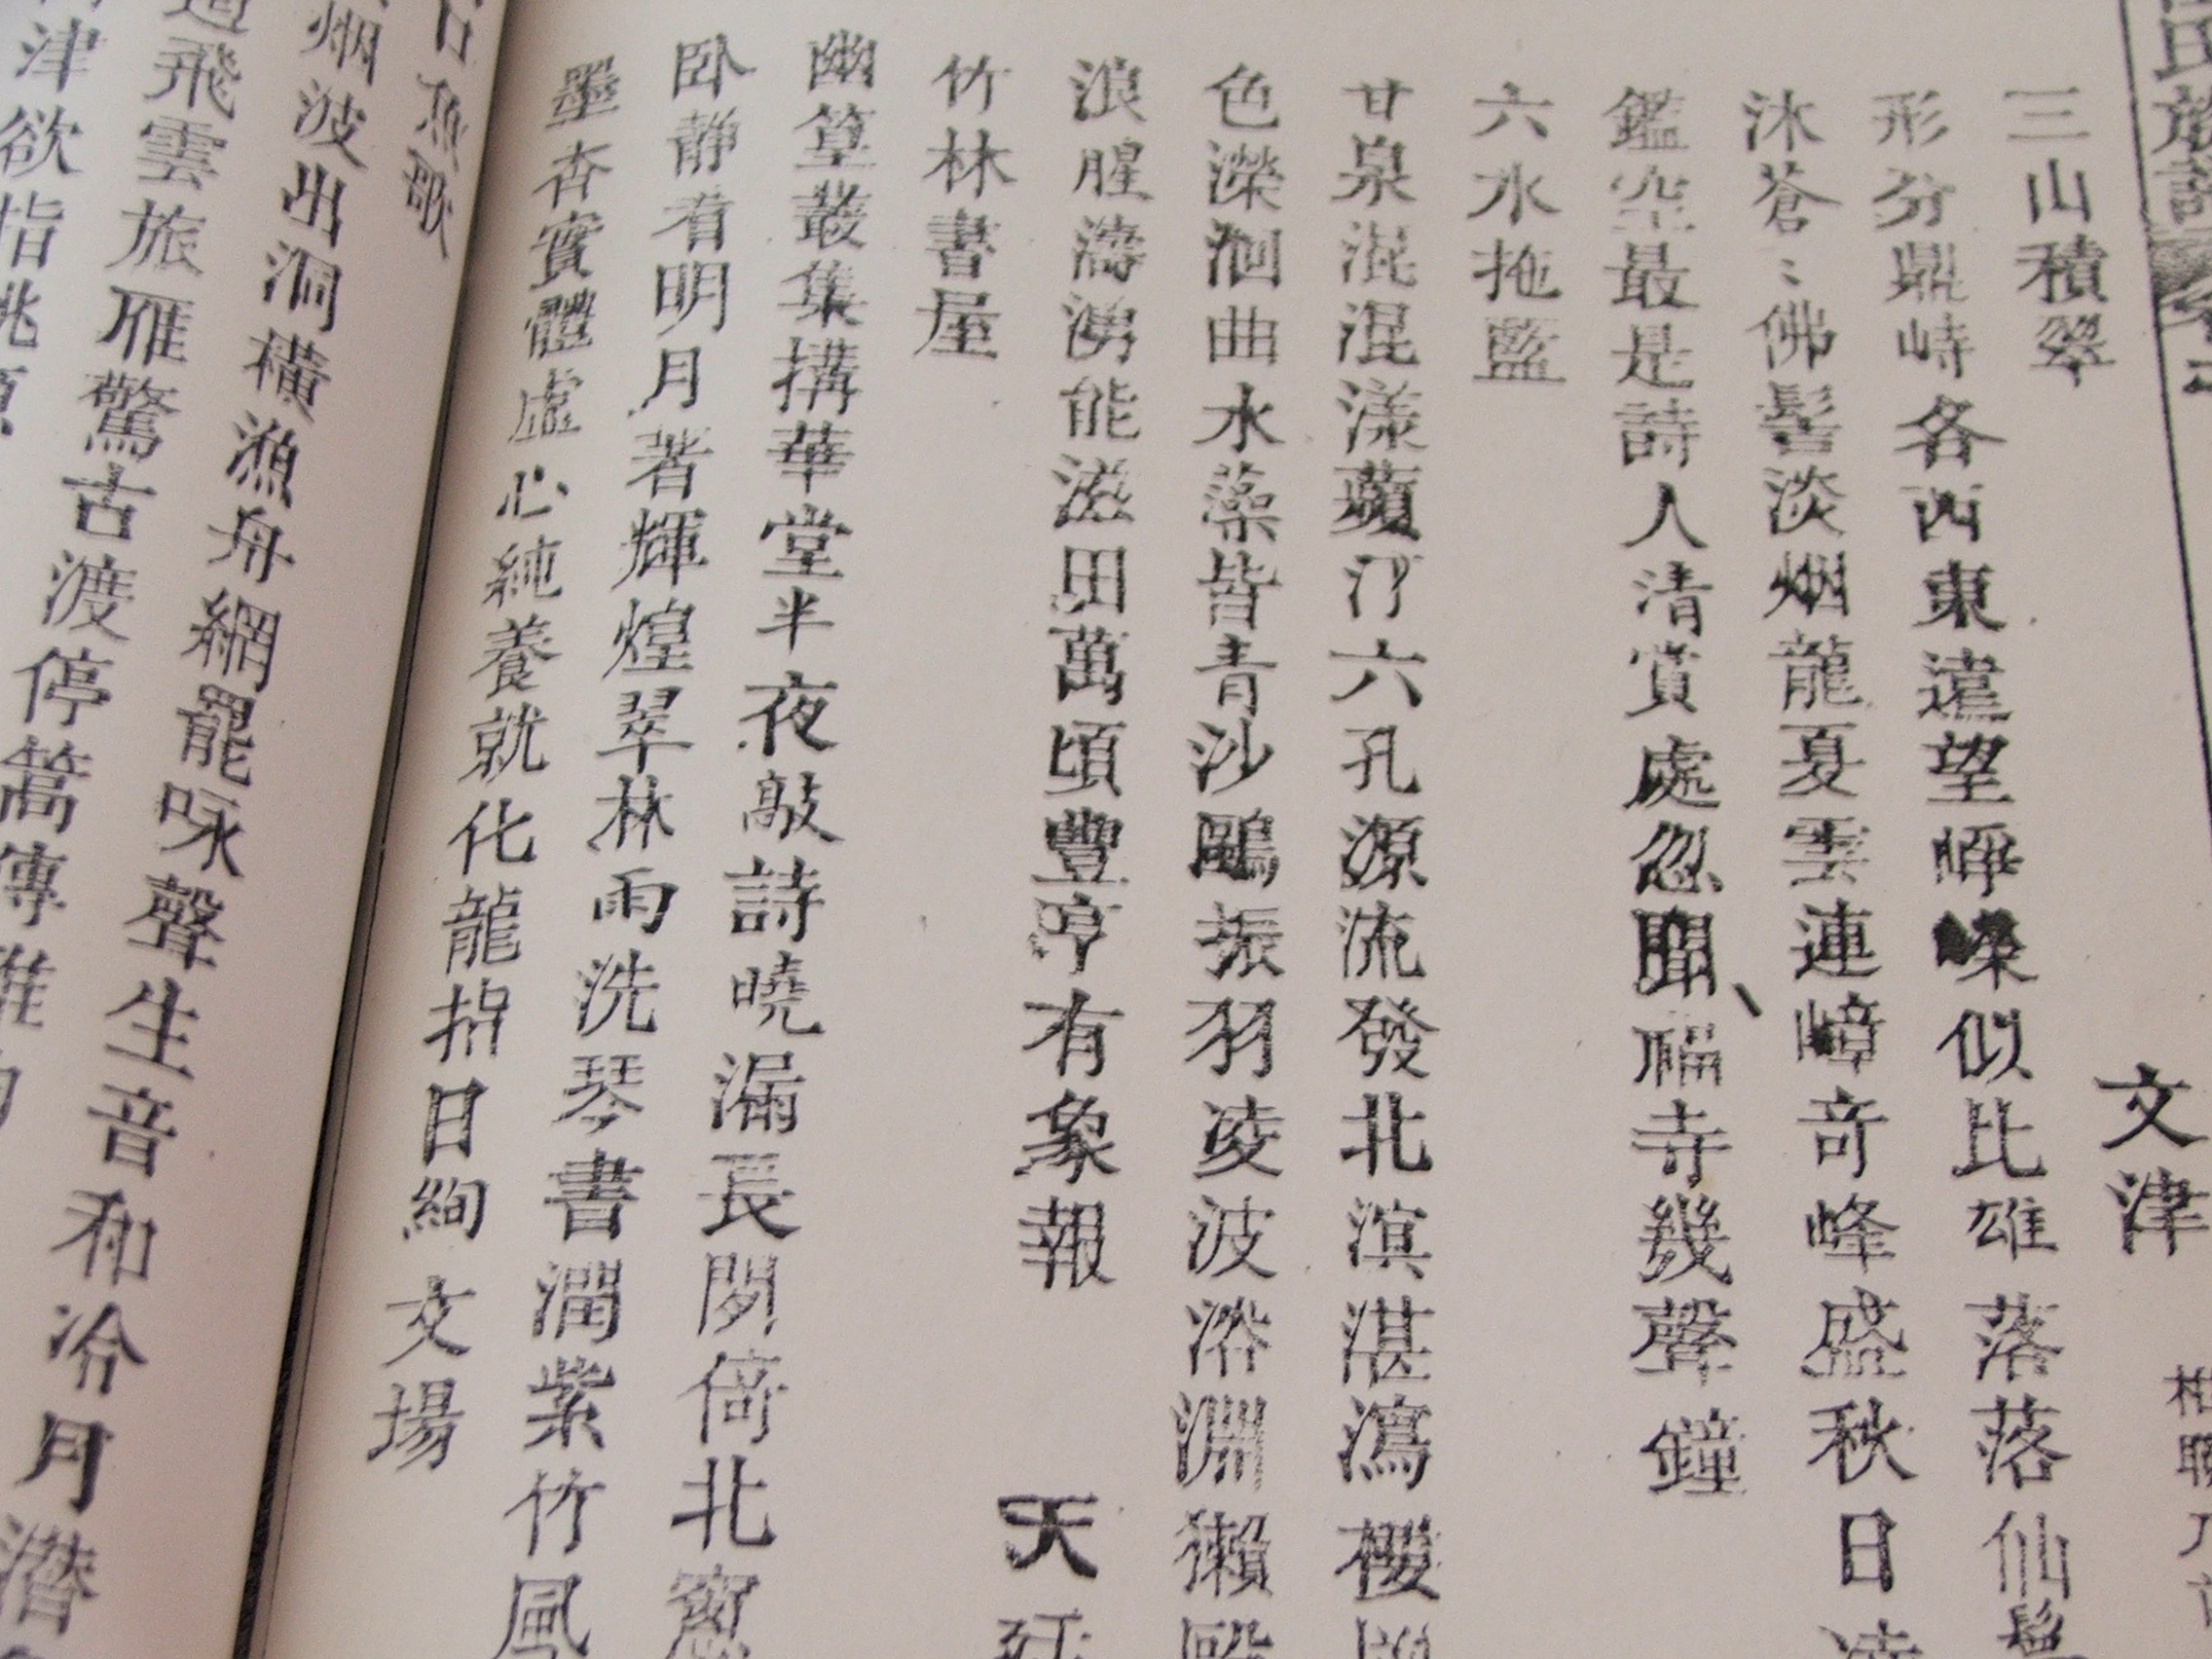 氏族譜
三山積翠
文津
形分鼎峙各西東遠望崢嶸似比雄落落仙
沐蒼〻佛髻淡烟龍夏雲連嶂奇峰盛秋日
鑑空最是詩人清賞處忽聞福寺幾聲鐘
六水拖藍
甘泉混混漾蘋汀六孔源流發北溟湛瀉櫻
色濚洄曲水藻皆青沙鷗振羽凌波浴淵獺
浪腥濤湧能滋田萬頃豐亨有象報
天
竹林書屋
幽篁叢集搆華堂半夜敲詩曉漏長閒倚北窓
卧靜看明月著輝煌翠林雨洗琴書潤紫竹風
墨杏實體虛心純養就化龍指日絢文場
口魚歌
烟波出洞橫漁舟網罷咏聲生音和冷月潛
飛雲旅雁驚古渡停篙傳
津欲指